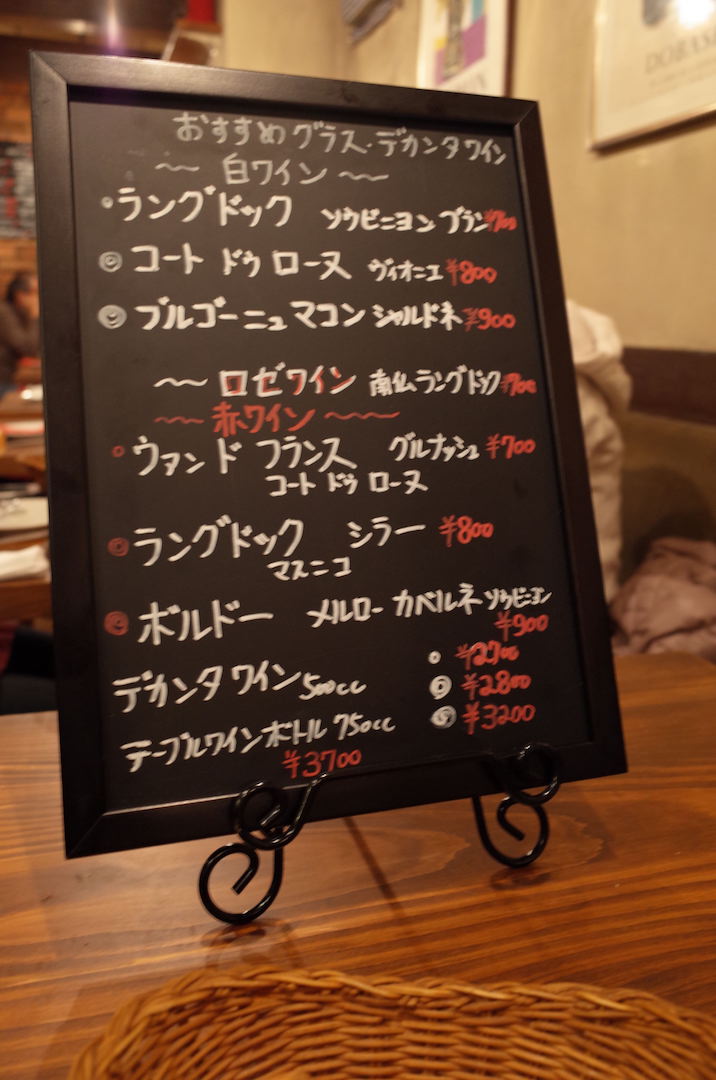 おすすめグラス・デカンタワイン
〜 白ワイン 〜
・ラングドック ソウビニヨン ブラン ¥700
◎ コート ドゥ ローヌ ヴィオニエ ¥800
◎ ブルゴーニュ マコン シャルドネ ¥900
〜 ロゼワイン 南仏ラングドック ¥700
〜 赤ワイン 〜
○ ヴァンド フランス グルナッシュ ¥700
コート ドゥ ローヌ
◎ ラングドック シラー ¥800
マスニコ
◎ ボルドー メルロー カベルネ ソウビニヨン
¥900
デカンタ ワイン 500cc ○ ¥2700
◎ ¥2800
◎ ¥3200
テーブルワインボトル 750cc
¥3700
DOBAS